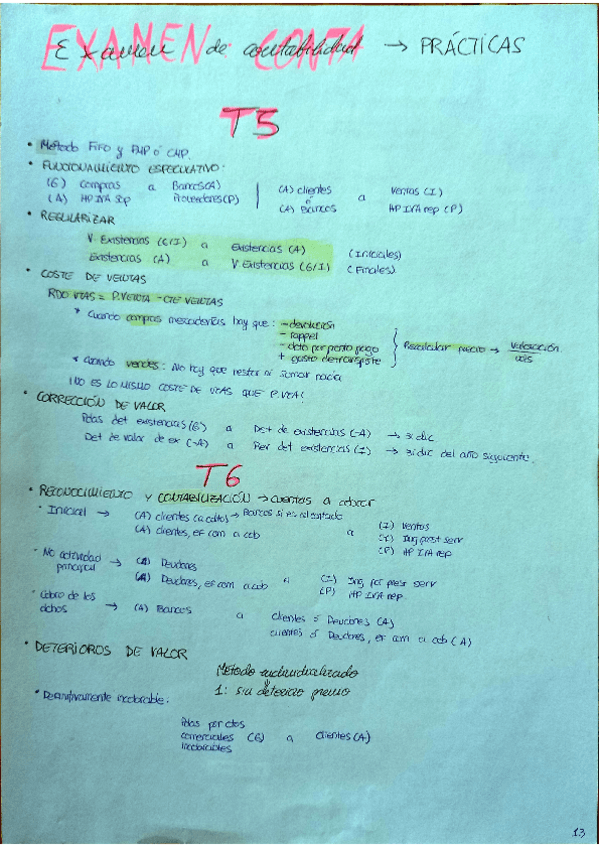 EXAMEN CONTA
Examen de contabilidad → PRÁCTICAS
T5
• Método FIFO y PMP ó CMP.
• FUNCIONAMIENTO ESPECULATIVO:
(G) Compras a Bancos (A) | (A) clientes a Ventas (I)
(A) HP IVA sop Proveedores (P) | (A) Bancos HP IVA rep (P)
• REGULARIZAR
V. Existencias (G/I) a Existencias (A) (Iniciales)
Existencias (A) a V Existencias (G/I) (Finales)
• COSTE DE VENTAS
RDO VTAS = P.VENTA - CTE VENTAS
* Cuando compras mercaderías hay que: - devolución
- rappel
- dcto por pronto pago
+ gasto de transporte
Recalcular precio → Valoración / uds
* Cuando vendes: No hay que restar ni sumar nada
¡NO ES LO MISMO COSTE DE VTAS QUE P.VTA!
• CORRECCIÓN DE VALOR
Pdas det existencias (G) a Det de existencias (-A) → 31 dic
Det de valor de ex (-A) a Rev det existencias (I) → 31 dic del año siguiente.
T6
• RECONOCIMIENTO y CONTABILIZACIÓN → cuentas a cobrar
• Inicial → (A) clientes (a cdto) → Bancos si es al contado (I) Ventas
(A) clientes, ef com a cob a (I) Ing prest serv
(P) HP IVA rep
• No actividad principal → (A) Deudores (I) Ing por prest serv
(A) Deudores, ef com a cob a (P) HP IVA rep.
• Cobro de los dchos → (A) Bancos a clientes ó Deudores (A)
clientes ó Deudores, ef com a cob (A)
• DETERIOROS DE VALOR
Método individualizado
1: sin deterioro previo
• Definitivamente incobrable:
Pdas por ctos
comerciales (G) a clientes (A)
incobrables
13